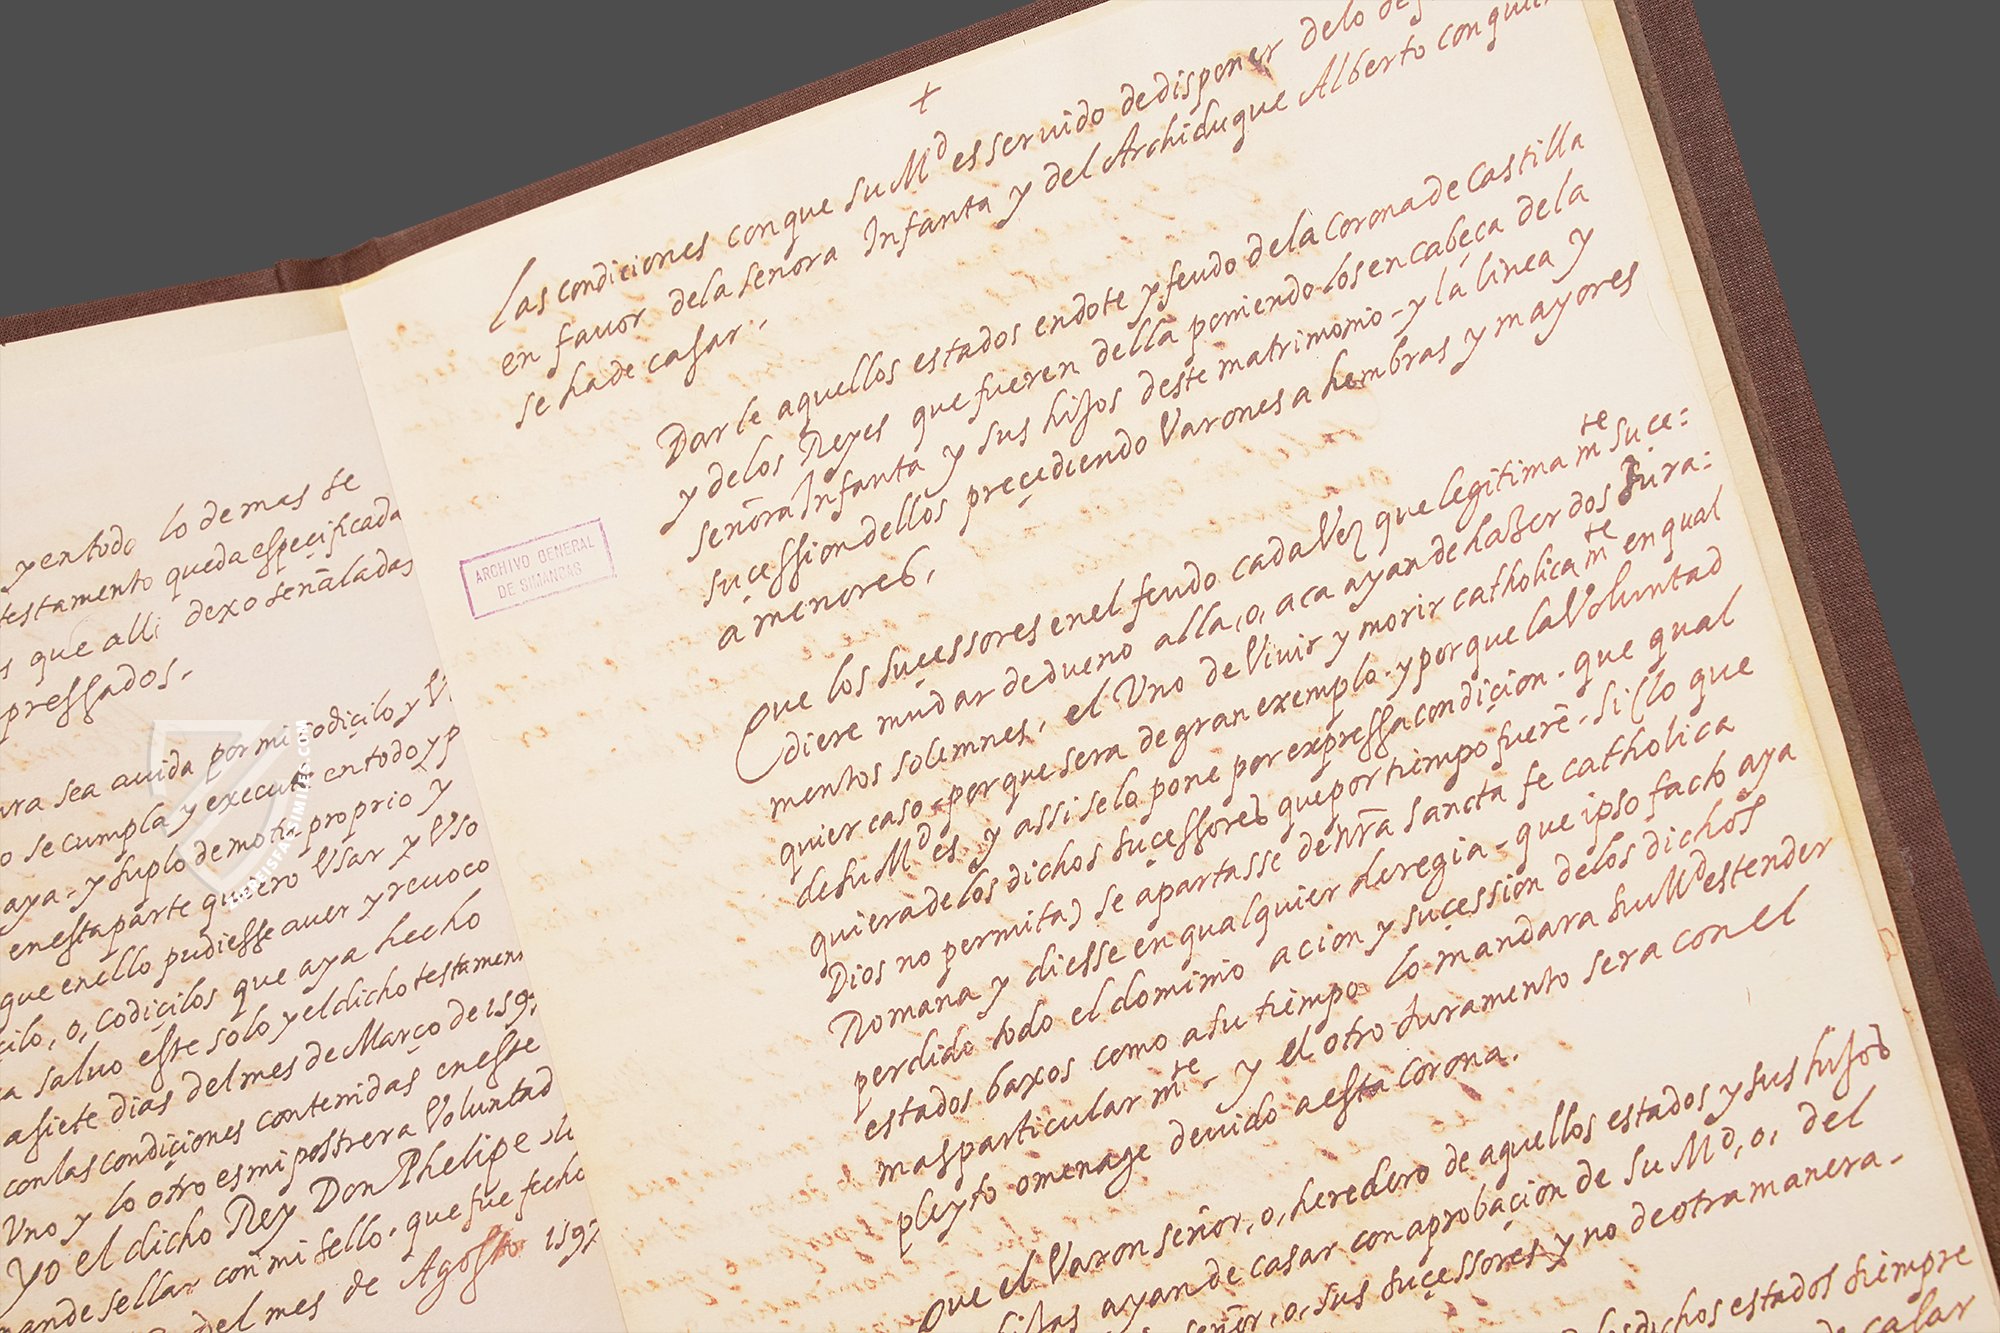 y en todo lo demas se
testamento queda espeçificada
que alli dexo señaladas
pressados.
sea auida por mi codiçilo y
se cumpla y execute en todo y
aya - y suplo de motu proprio y
en esta parte quiero Usar y Uso
que en ello pudiesse auer y reuoco
o, codiçilos que aya hecho
salvo este solo y el dicho
a siete dias del mes de Março de
con las condiçiones contenidas en este
Uno y lo otro es mi postrera Voluntad
Yo el dicho Rey Don Phelipe
mande sellar con mi sello. que fue fecho
del mes de Agosto
+
Las condiciones con que su M^d es seruido de disponer delo
en fauor dela señora Infanta y del Archiduque Alberto con
se ha de casar.
Dar le aquellos estados en dote y feudo dela Corona de Castilla
y delos Reyes que fueren della poniendo los en cabeça dela
señora Infanta y sus hijos deste matrimonio - y la linea y
suçession dellos preçediendo Varones a hembras y mayores
a menores.
Que los suçessores en el feudo cada Vez que legitima m^te suce:
diere mudar de dueno alla, o, aca ayan de hazer dos Jura:
mentos solemnes, el Uno de Viuir y morir catholica m^te en qual
quier caso - porque sera de gran exemplo - y por que la Voluntad
de su M^d es, y assi se lo pone por expressa condiçion - que qual
quiera de los dichos suçessores que por tiempo fuere - si (lo que
Dios no permita) se apartasse de nr̃a sancta fe catholica
Romana y diesse en qualquier heregia - que ipso facto aya
perdido todo el dominio acion y suçession delos dichos
estados baxos como a su tiempo lo mandara su M^d estender
mas particular m^te - y el otro Juramento sera con el
pleyto omenage deuido a esta Corona.
Que el Varon señor, o, heredero de aquellos estados y sus hijos
hijas ayan de casar con aprobaçion de su M^d, o, del
señor, o, sus suçessores y no de otra manera -
dichos estados siempre
de casar
ARCHIVO GENERAL
DE SIMANCAS